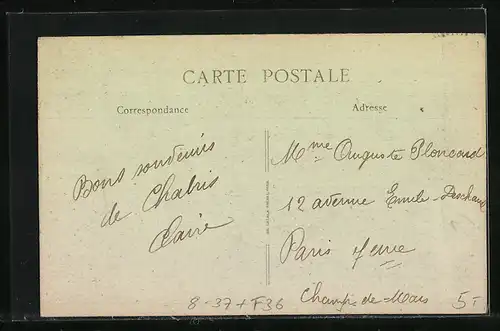 CARTE POSTALE
Correspondance
Adresse
Bons souvenirs
de Chabris
Claire
Mme Auguste Ploncard
12 avenue Emile-Deschanel
Paris 7eme
Champ-de-Mars
8-37+F36
5-